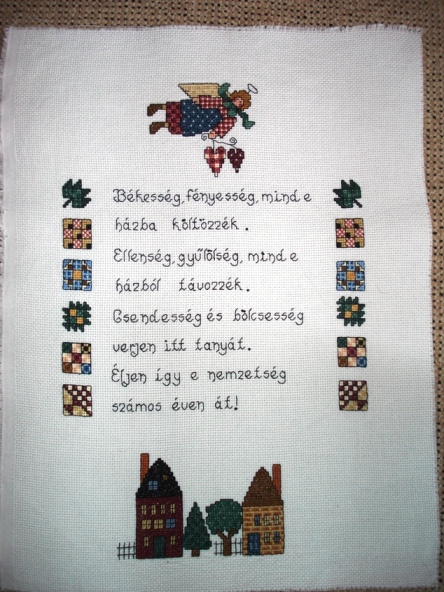 Békesség, fényesség, mind e
házba költözzék.
Ellenség, gyűlölség, mind e
házból távozzék.
Csendesség és bölcsesség
verjen itt tanyát.
Éljen így e nemzetség
számos éven át!